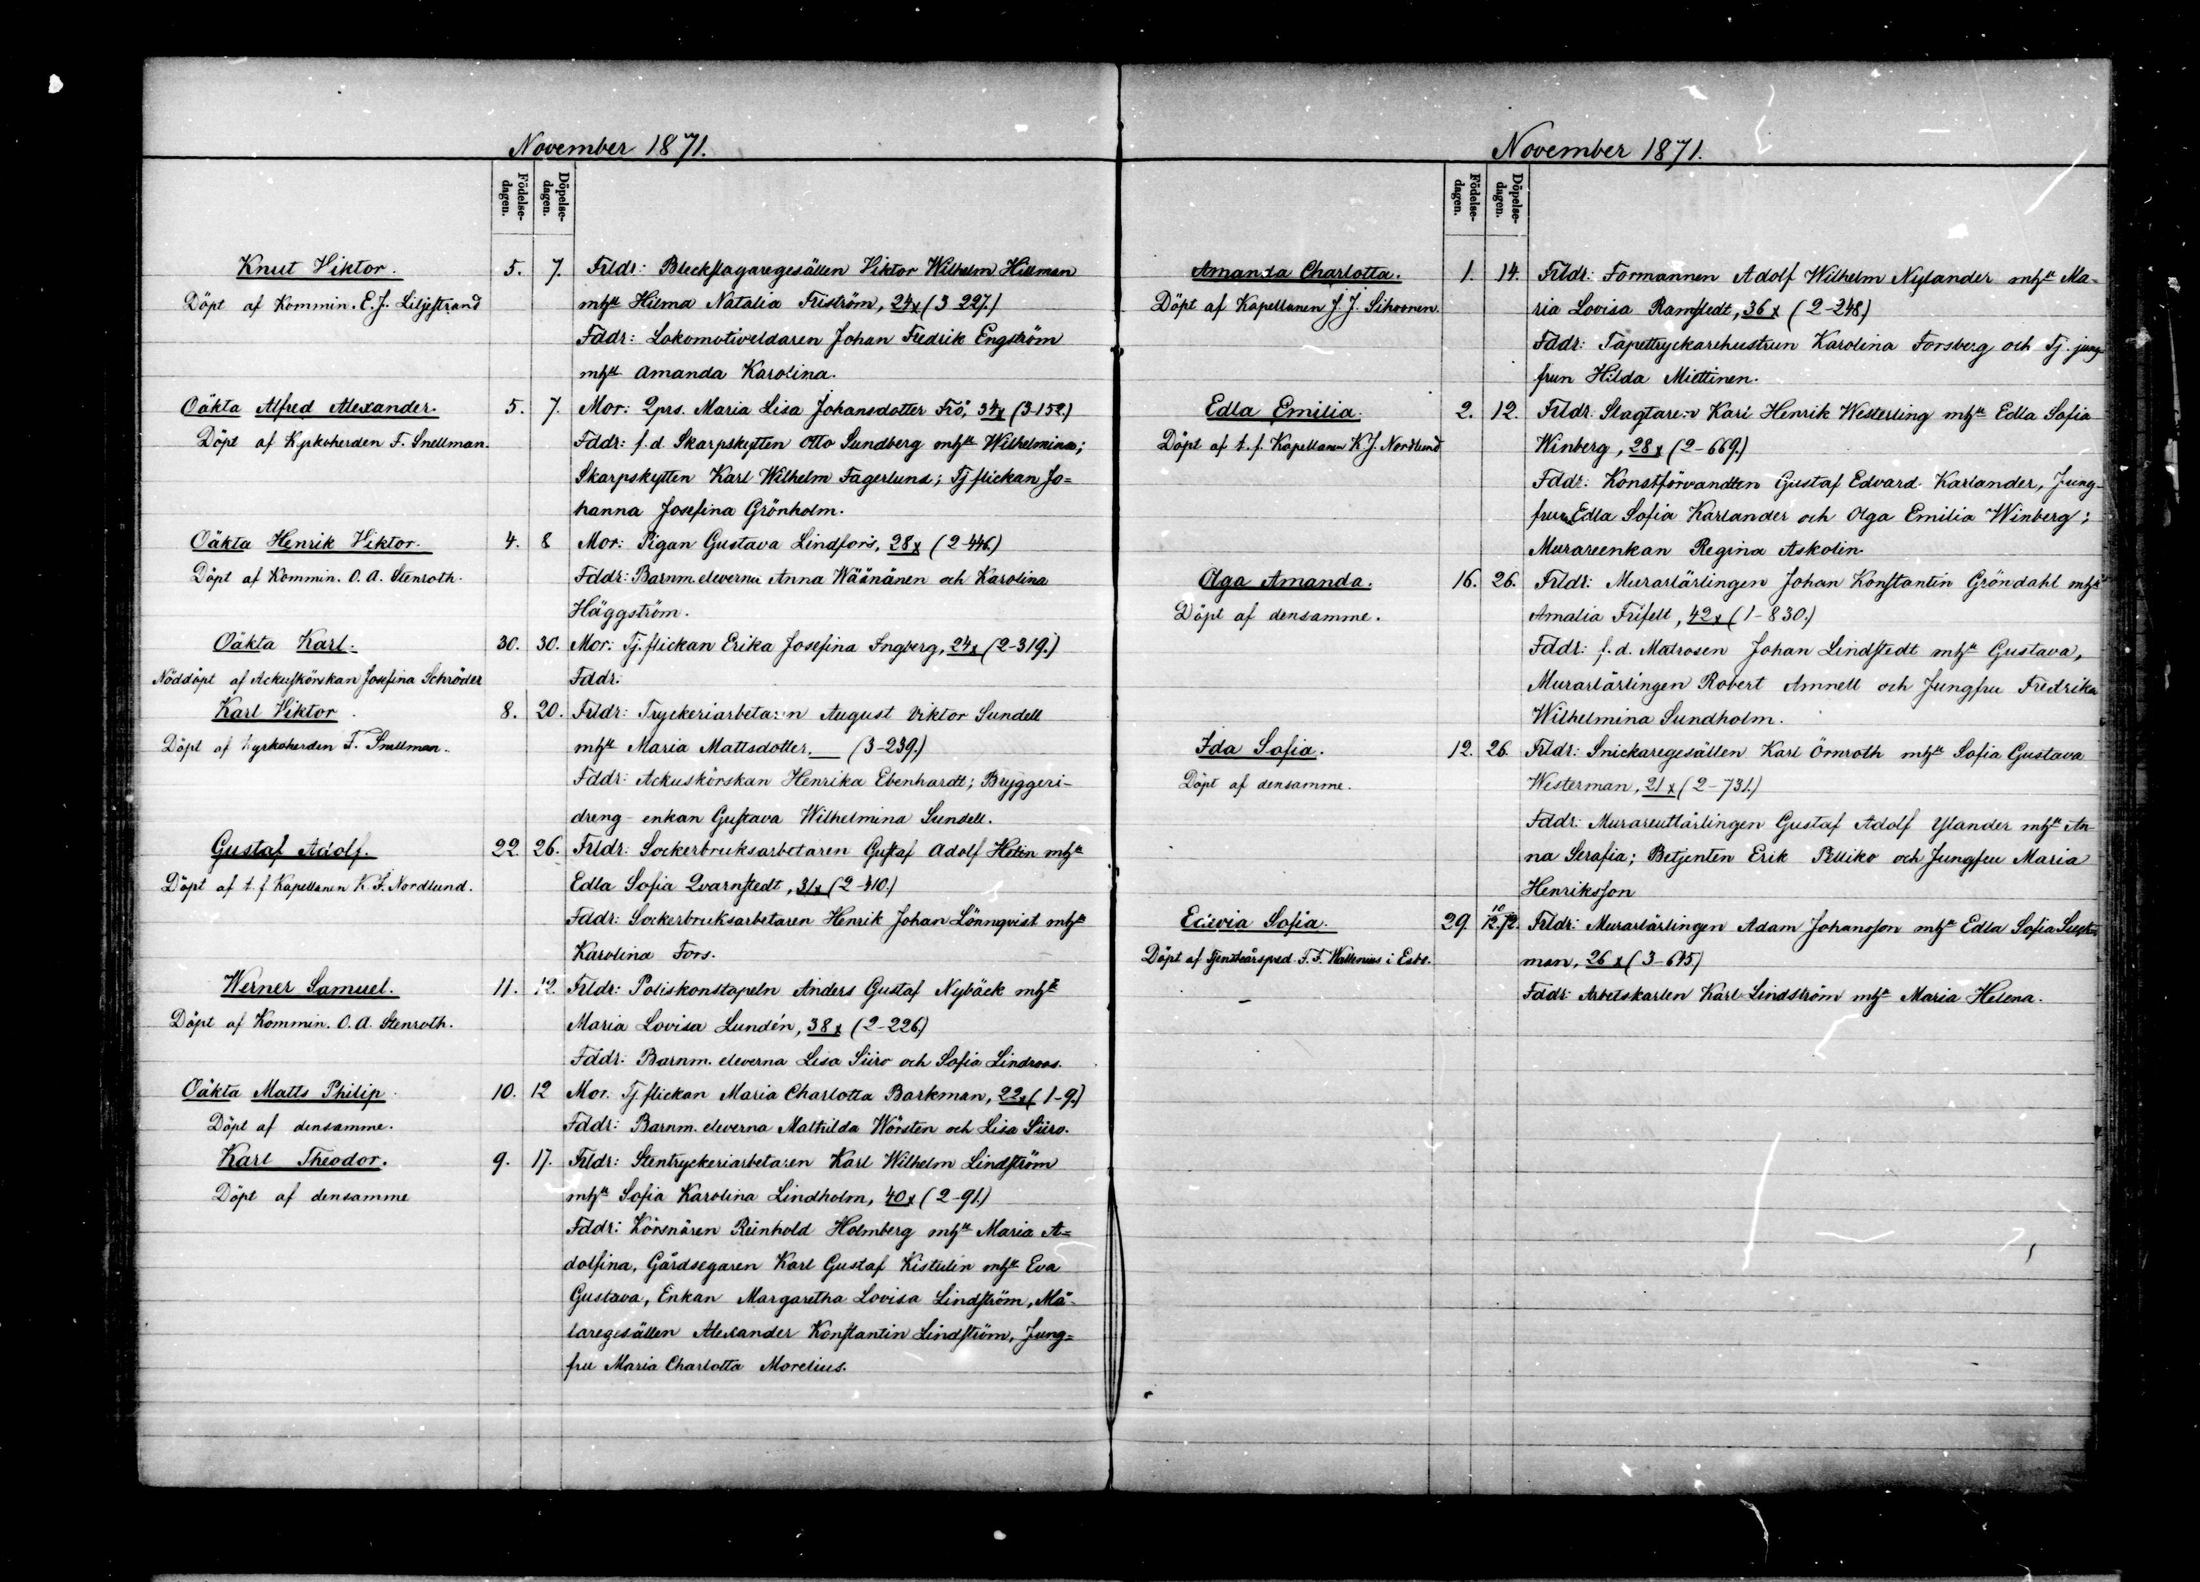 November 1871.
Födelse-dagen. Döpelse-dagen.
Knut Viktor. 5. 7. Frldr: Bleckslagaregesällen Viktor Wilhelm Hillman
Döpt af Kommin. E. J. Liljestrand mhu Hilma Natalia Friström, 24 x (3 227.)
Fddr: Lokomotiveldaren Johan Fredrik Engström
mhu Amanda Karolina.
Oäkta Alfred Alexander. 5. 7. Mor: Qprs. Maria Lisa Johansdotter Frö, 34 x (3-152.)
Döpt af Kyrkoherden F. Snellman. Fddr: f.d. Skarpskytten Otto Sundberg mhu Wilhelmina;
Skarpskytten Karl Wilhelm Fagerlund; Tj flickan Jo=
hanna Josefina Grönholm.
Oäkta Henrik Viktor. 4. 8 Mor: Pigan Gustava Lindfors, 28 x (2-446.)
Döpt af Kommin. O. A. Stenroth. Fddr: Barnm. eleverna Anna Wäänänen och Karolina
Häggström.
Oäkta Karl. 30. 30. Mor: Tj. flickan Erika Josefina Ingberg, 24 x (2-319.)
Nöddöpt af Ackuskörskan Josefina Schröder Fddr.
Karl Viktor 8. 20. Frldr: Tryckeriarbetaren August Viktor Sundell
Döpt af Kyrkoherden F. Snellman. mhu Maria Mattsdotter. __ (3-239.)
Fddr: Ackuskörskan Henrika Ebenhardt; Bryggeri-
dreng-enkan Gustava Wilhelmina Sundell.
Gustaf Adolf. 22. 26. Frldr: Sockerbruksarbetaren Gustaf Adolf Helin mhu
Döpt af t. f Kapellanen K. J. Nordlund. Edla Sofia Qvarnstedt, 31 x (2-410.)
Fddr: Sockerbruksarbetaren Henrik Johan Lönnqvist mhu
Karolina Fors.
Werner Samuel. 11. 12. Frldr: Poliskonstapeln Anders Gustaf Nybäck mhu
Döpt af Kommin. O. A. Stenroth. Maria Lovisa Lundén, 38 x (2-226.)
Fddr: Barnm. eleverna Lisa Siiro och Sofia Lindroos.
Oäkta Matts Philip. 10. 12 Mor. Tj flickan Maria Charlotta Barkman, 22 x (1-9.)
Döpt af densamme. Fddr: Barnm. eleverna Mathilda Wörsten och Lisa Siiro.
Karl Theodor. 9. 17. Frldr: Stentryckeriarbetaren Karl Wilhelm Lindström
Döpt af densamme mhu Sofia Karolina Lindholm, 40 x (2-91.)
Fddr: Körsnären Reinhold Holmberg mhu Maria A=
dolfina, Gårdsegaren Karl Gustaf Kistulin mhu Eva
Gustava, Enkan Margaretha Lovisa Lindström, Må-
laregesällen Alexander Konstantin Lindström, Jung=
fru Maria Charlotta Morelius.
November 1871.
Födelse-dagen. Döpelse-dagen.
Amanda Charlotta. 1. 14. Frldr: Formannen Adolf Wilhelm Nylander mhu Ma-
Döpt af Kapellanen J. J. Sihvonen. ria Lovisa Ramstedt, 36 x (2-248)
Fddr: Tapettryckarehustrun Karolina Forsberg och Tj. jung-
frun Hilda Miettinen.
Edla Emilia. 2. 12. Frldr: Slagtaren Karl Henrik Westerling mhu Edla Sofia
Döpt af t. f. Kapellanen K J. Nordlund Winberg, 28 x (2-669.)
Fddr: Konstförvandten Gustaf Edvard Karlander, Jung-
frun Edla Sofia Karlander och Olga Emilia Winberg;
Murareenkan Regina Askolin.
Olga Amanda. 16. 26. Frldr: Murarlärlingen Johan Konstantin Gröndahl mhu
Döpt af densamme. Amalia Frifelt, 42 x (1-830.)
Fddr: f. d. Matrosen Johan Lindstedt mhu Gustava,
Murarlärlingen Robert Amnell och Jungfru Fredrika
Wilhelmina Sundholm.
Ida Sofia. 12. 26. Frldr: Snickaregesällen Karl Örnroth mhu Sofia Gustava
Döpt af densamme. Westerman, 21 x (2-731.)
Fddr: Murareutlärlingen Gustaf Adolf Ylander mhu An-
na Serafia; Betjenten Erik Pelliko och Jungfru Maria
Henriksson
Sofia. 29. 10/12. 72. Frldr: Murarlärlingen Adam Johansson mhu Edla Sofia
Döpt af F. F. Wallenius i Esbo. man, 26 x (3-615)
Fddr: Arbetskarlen Karl Lindström mhu Maria Helena.